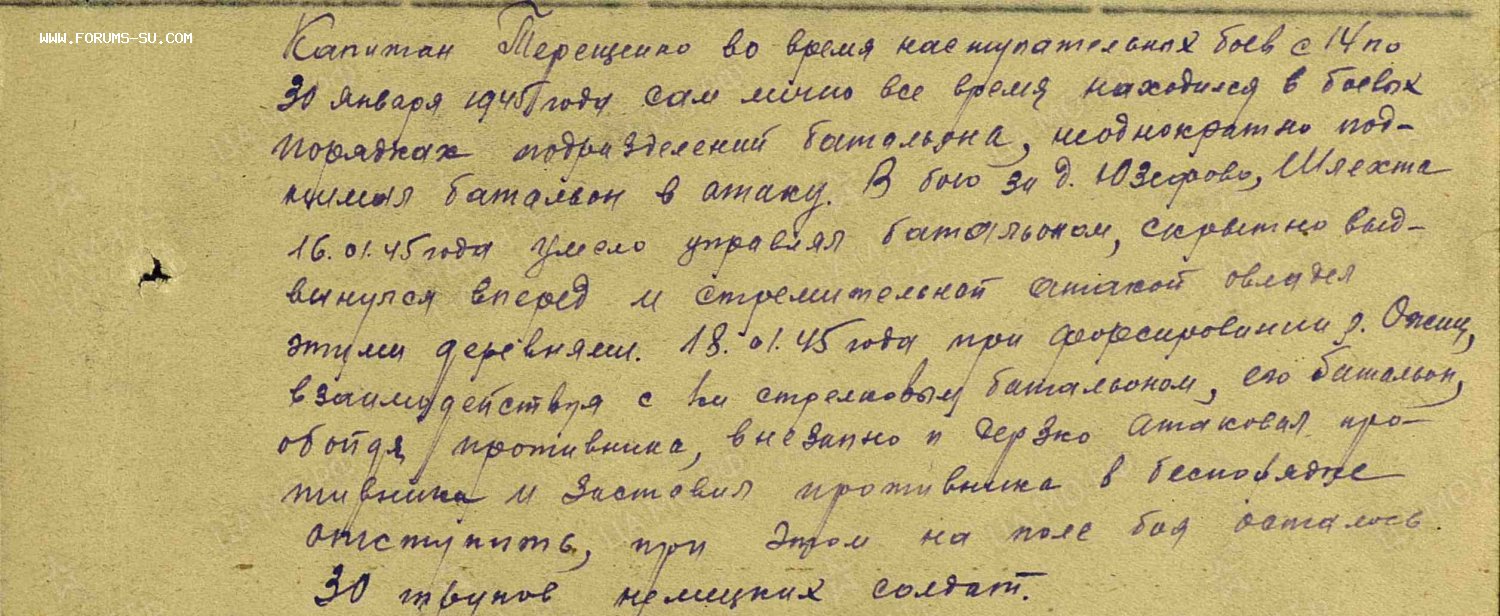 WWW.FORUMS-SU.COM
Капитан Терещенко во время наступательных боев с 14 по
30 января 1945 года сам лично все время находился в боевых
порядках подразделений батальона, неоднократно под-
нимал батальон в атаку. В бою за д. Юзефово, Шляхта
16.01.45 года умело управлял батальоном, скрытно выд-
винулся вперед и стремительной атакой овладел
этими деревнями. 18.01.45 года при форсировании р.
взаимодействуя с стрелковым батальоном, его батальон,
обойдя противника, внезапно и дерзко атаковал про-
тивника и заставил противника в беспорядке
отступить, при этом на поле боя осталось
30 трупов немецких солдат.